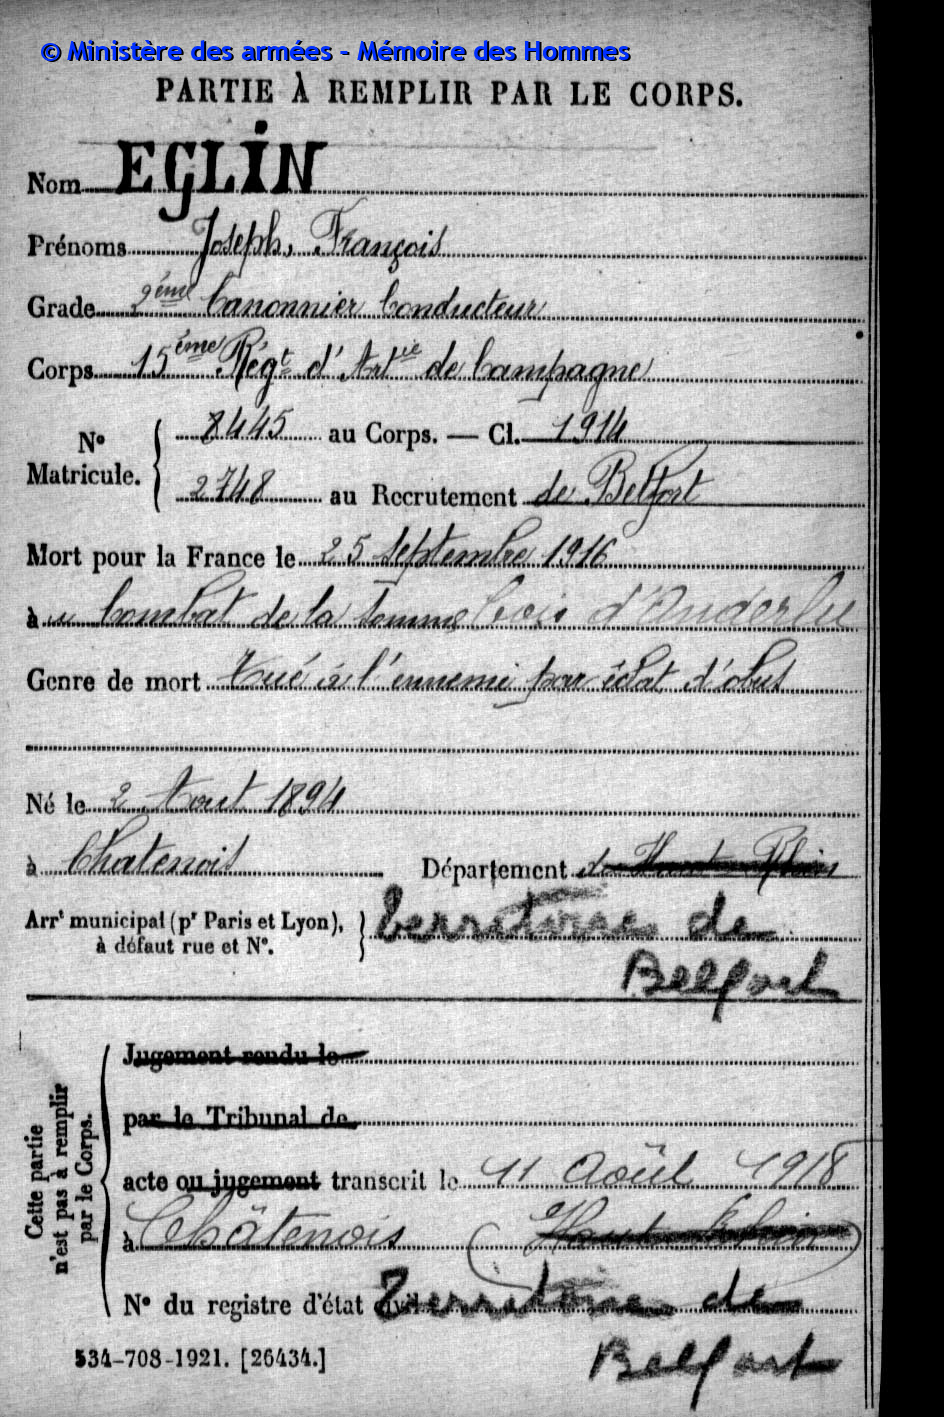 © Ministère des armées - Mémoire des Hommes
PARTIE À REMPLIR PAR LE CORPS.
Nom EGLIN
Prénoms Joseph, François
Grade 2ème Canonnier Conducteur
Corps 15ème Régt d'Artie de Campagne
No Matricule. { 8445 au Corps. — Cl. 1914
2748 au Recrutement de Belfort
Mort pour la France le 25 Septembre 1916
à u Combat de la Somme bois d'Anderlu
Genre de mort Tué à l'ennemi par éclat d'obus
Né le 2 Aout 1894
à Chatenois Département du Haut-Rhin
Arrt municipal (pr Paris et Lyon), à défaut rue et No. } Territoire de
Belfort
Cette partie n'est pas à remplir par le Corps.
Jugement rendu le
par le Tribunal de
acte ou jugement transcrit le 11 Août 1918
à Châtenois (Haut-Rhin)
No du registre d'état civil Territoire de
Belfort
534-708-1921. [26434.]